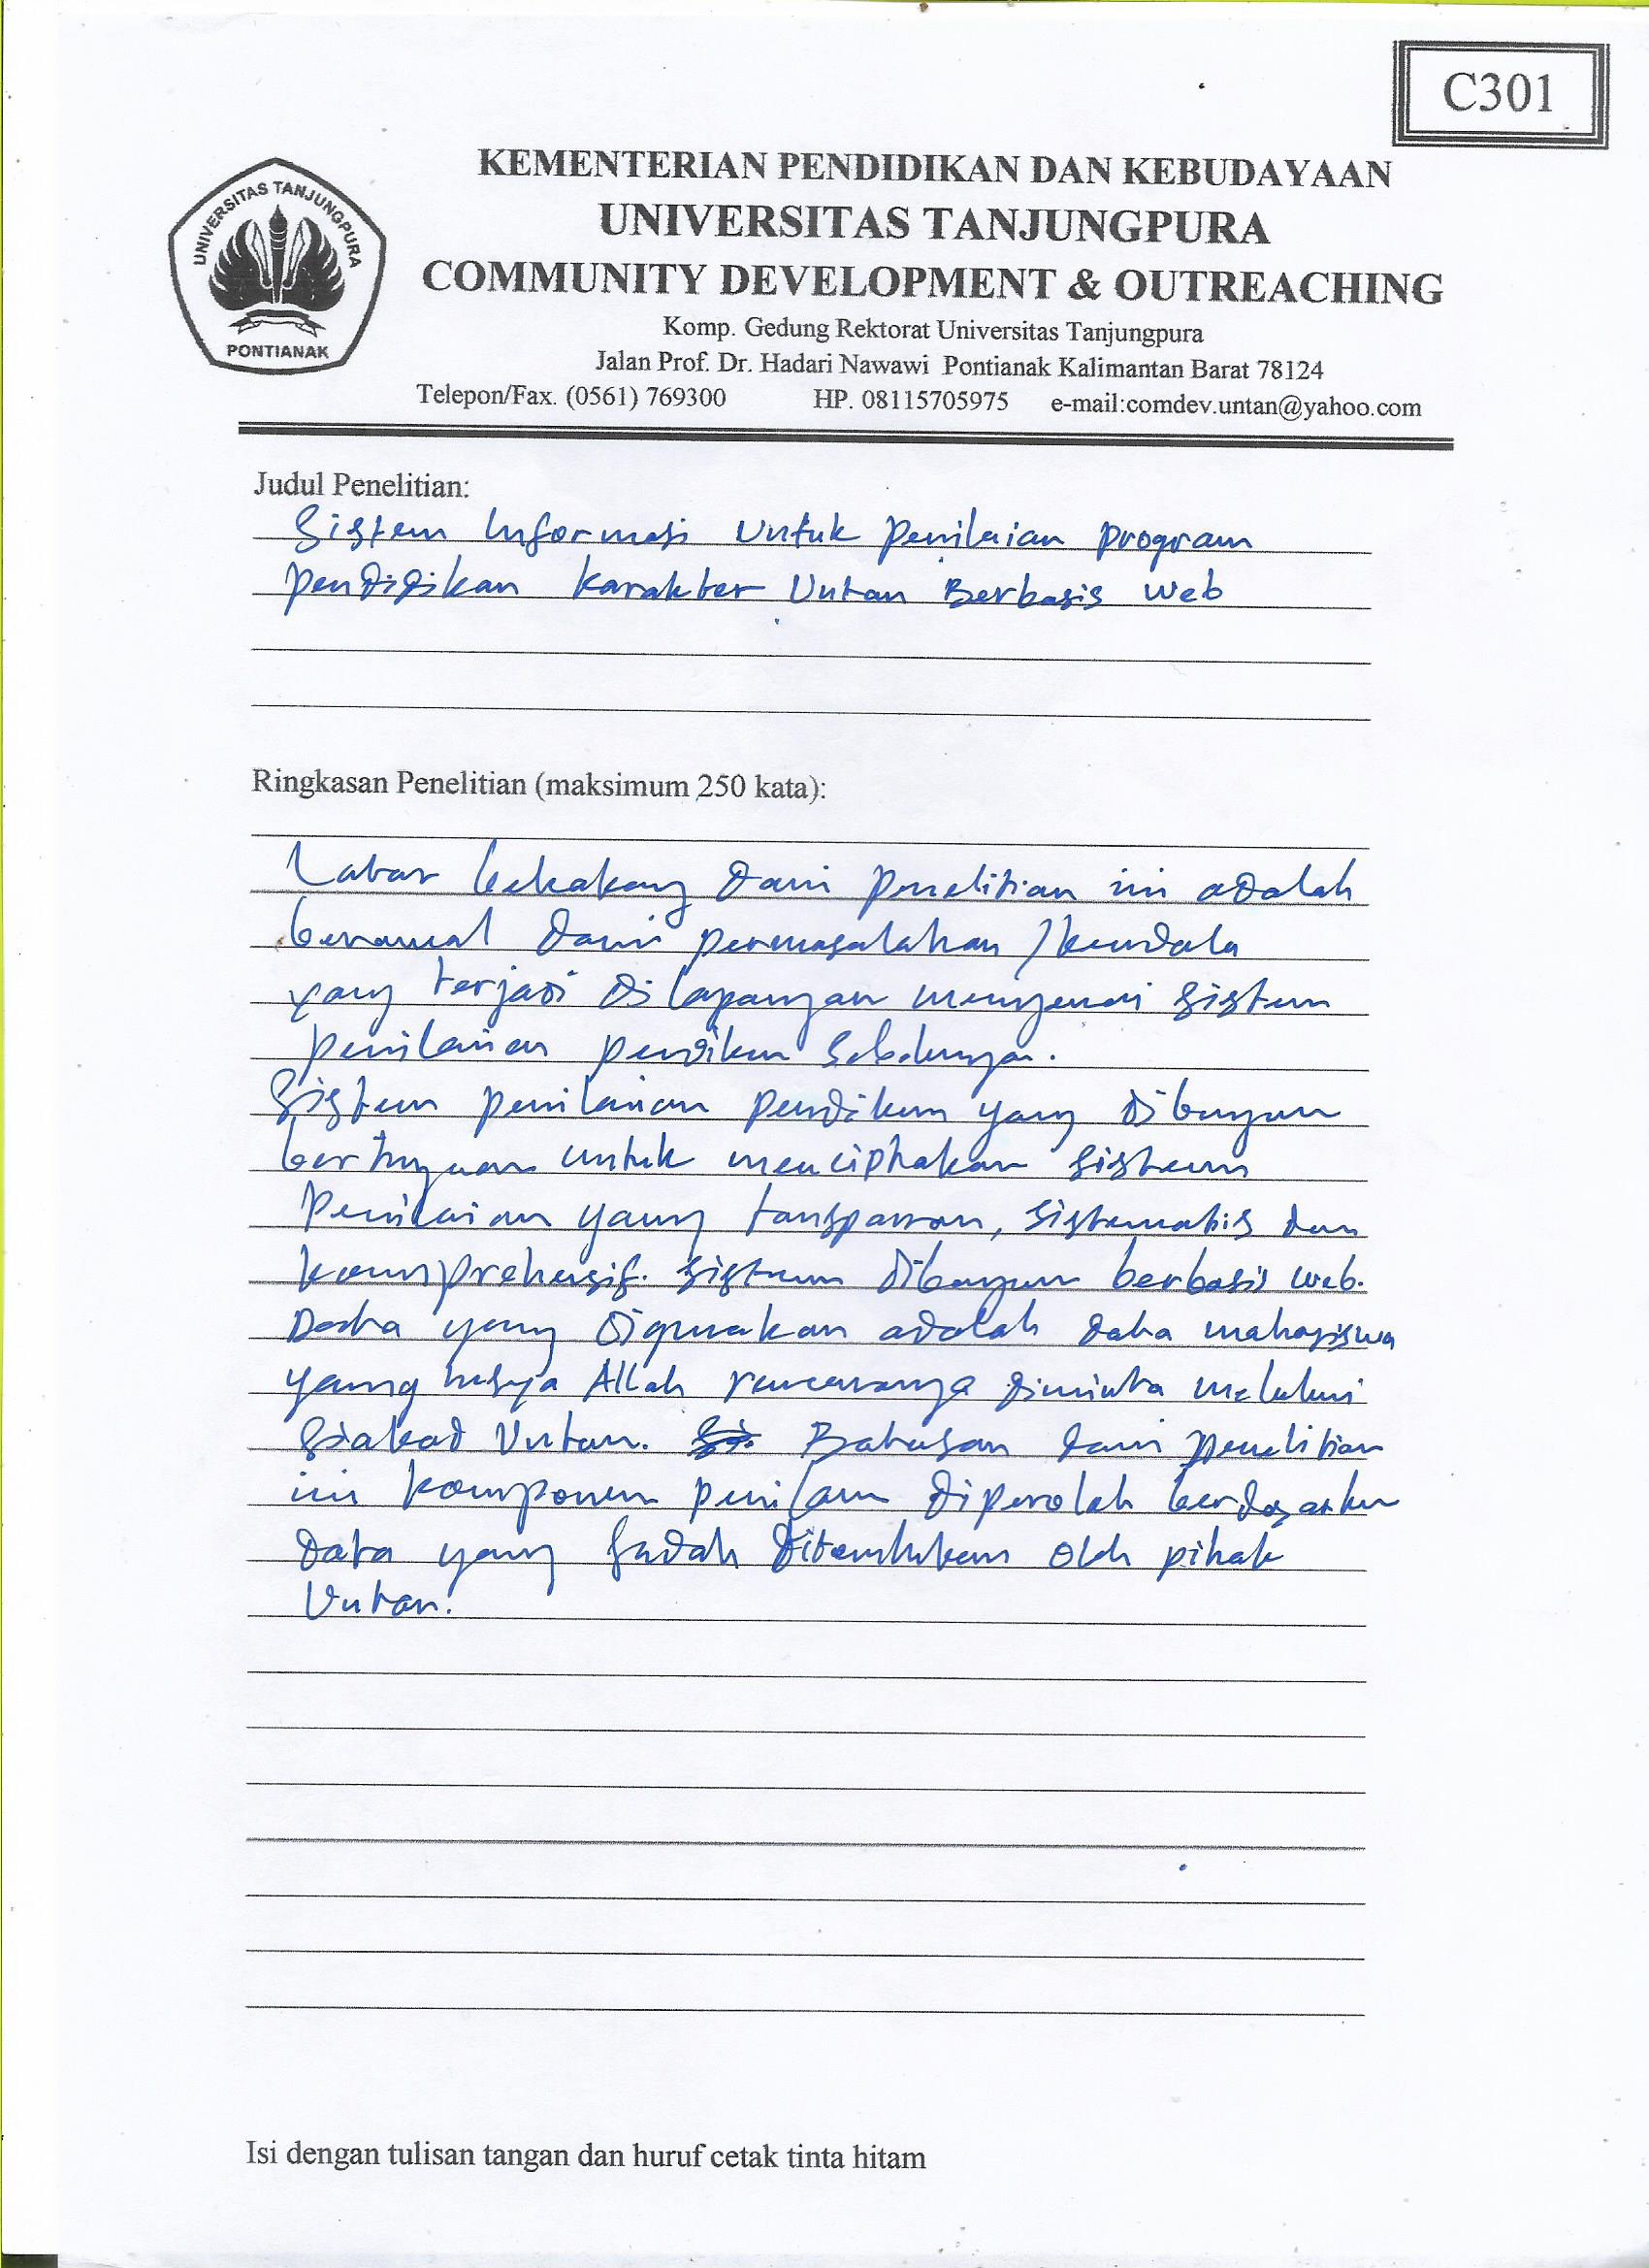 C301
KEMENTERIAN PENDIDIKAN DAN KEBUDAYAAN
UNIVERSITAS TANJUNGPURA
COMMUNITY DEVELOPMENT & OUTREACHING
Komp. Gedung Rektorat Universitas Tanjungpura
Jalan Prof. Dr. Hadari Nawawi Pontianak Kalimantan Barat 78124
Telepon/Fax. (0561) 769300 HP. 08115705975 e-mail:comdev.untan@yahoo.com
UNIVERSITAS TANJUNGPURA
PONTIANAK
Judul Penelitian:
Sistem Informasi Untuk Penilaian Program
Pendidikan Karakter Untan Berbasis Web
Ringkasan Penelitian (maksimum 250 kata):
Latar belakang dari penelitian ini adalah
berawal dari permasalahan / kendala
yang terjadi di lapangan mengenai sistem
penilaian pendikar sebelumnya.
Sistem penilaian pendikar yang dibangun
bertujuan untuk menciptakan sistem
Penilaian yang tansparan, sistematis dan
komprehensif. Sistem dibangun berbasis web.
Data yang digunakan adalah data mahasiswa
yang insya Allah rencananya diminta melalui
Siakad Untan. Batasan dari penelitian
ini komponen penilaian diperoleh berdasarkan
data yang sudah ditentukan oleh pihak
Untan.
Isi dengan tulisan tangan dan huruf cetak tinta hitam